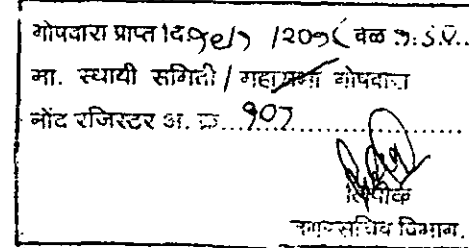 गोषवारा प्राप्त दि. /201 वेळ
मा. स्थायी समिती / महासभा गोषवारा
नोंद रजिस्टर अ. क्र. 907
लिपीक
नगरसचिव विभाग.